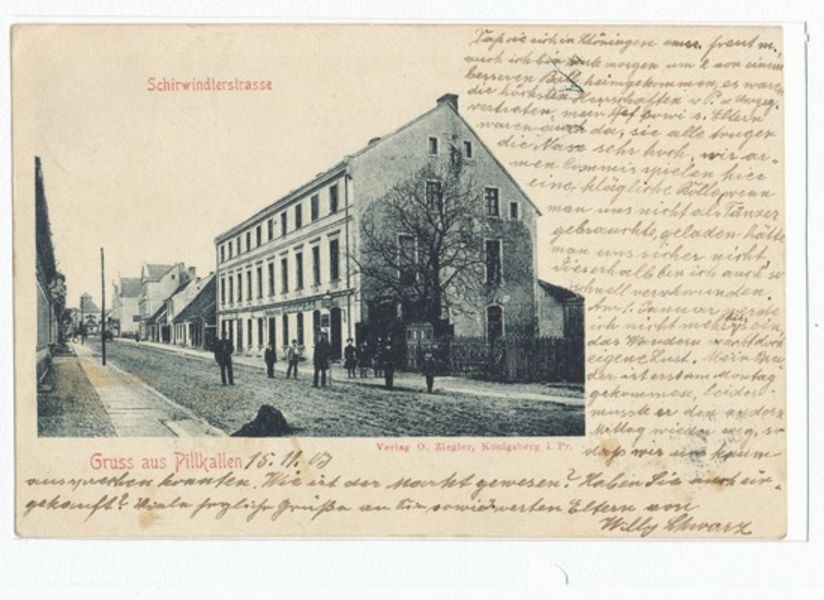 Schirwindterstrasse
Daß sie sich in Schöningen amus. freut m.
auch ich bin heute morgen um 2 von einem
besseren Ball heimgekommen, es waren
die höchsten Herrschaften v P. u Umgeg.
vertreten, mein Chef sowie s. Eltern
waren auch da, sie alle trugen
die Nase sehr hoch, wir ar-
men Commis spielen hier
eine klägliche Rolle, wenn
man uns nicht als Tänzer
gebrauchte, geladen hätte
man uns sicher nicht
Dieserhalb bin ich auch so
schnell verschwunden.
Am 1. Januar werde
ich nicht mehr hier sein,
das Wandern
eigene Lust. Mein Bru
der ist erst am Montag
gekommen, leider
musste er den andern
Mittag wieder weg, so
daß wir uns kaum
Verlag O. Ziegler, Königsberg i. Pr.
Gruss aus Pillkallen 15.11.03
aussprechen konnten. Wie ist der Markt gewesen? Haben Sie auch ein-
gekauft? Viele Grüße an Sie sowie werten Eltern von
Willy Schwarz